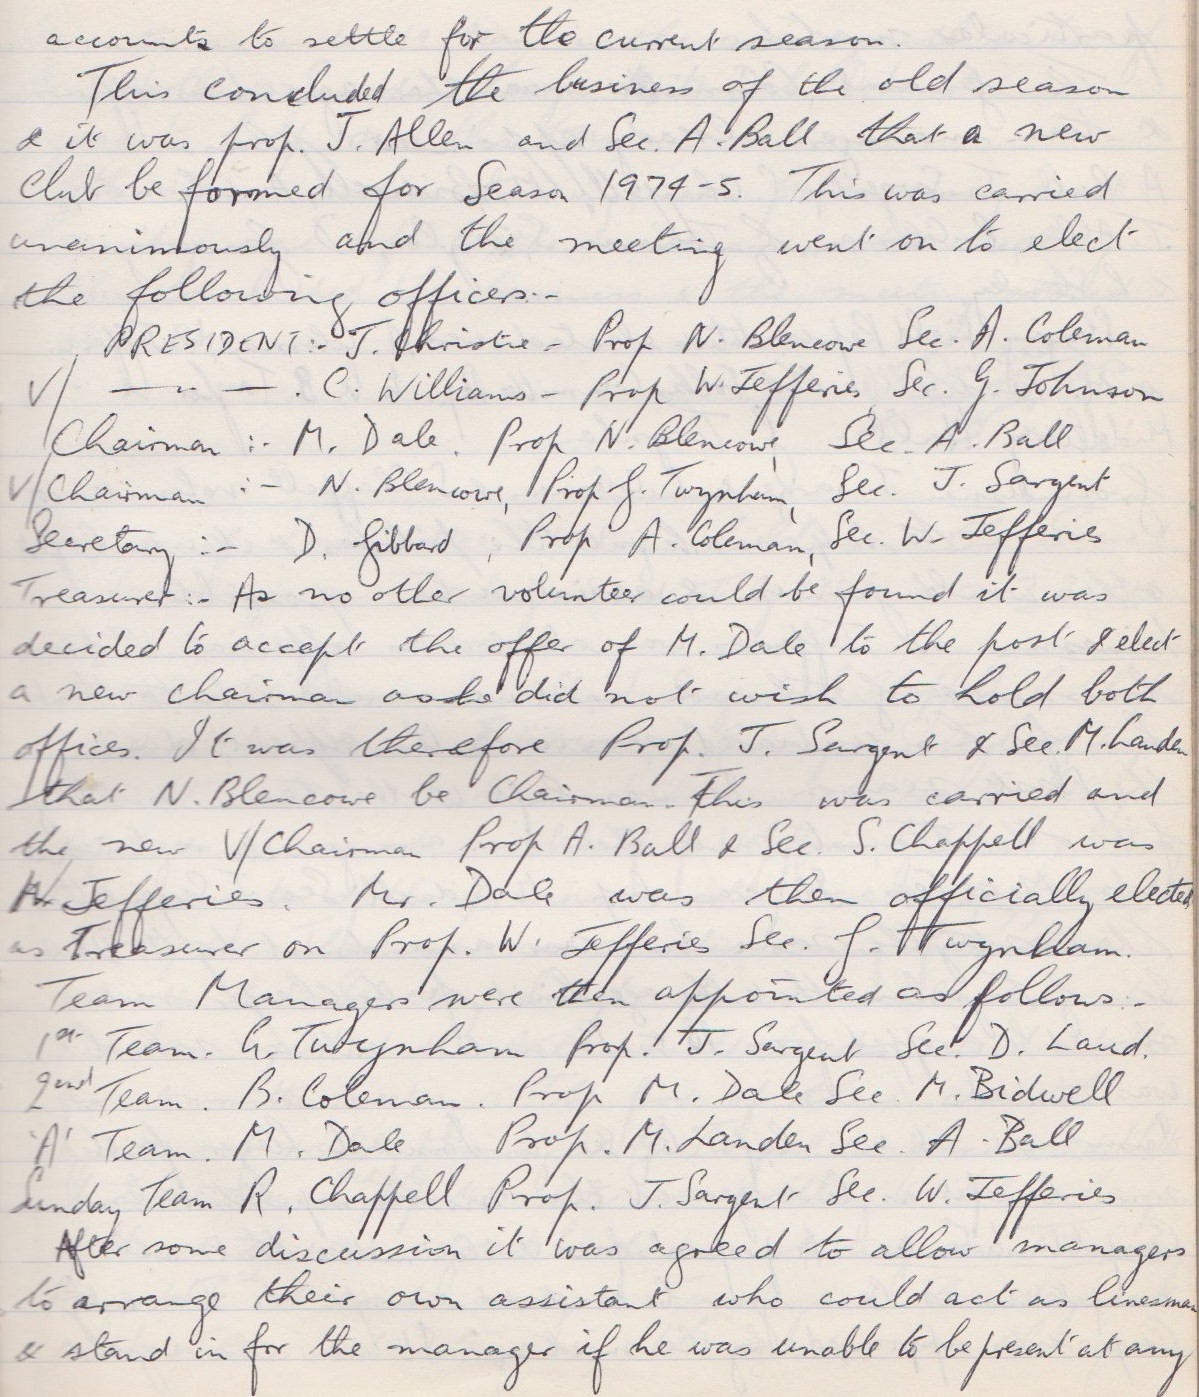 accounts to settle for the current season.
This concluded the business of the old season
& it was prop. J. Allen and Sec. A. Ball that a new
Club be formed for Season 1974-5. This was carried
unanimously and the meeting went on to elect
the following officers:-
PRESIDENT:- J. Christie - Prop N. Blencowe Sec. A. Coleman
V/ — " — . C. Williams - Prop W. Jefferies, Sec. G. Johnson
Chairman :- M. Dale. Prop N. Blencowe, Sec. A. Ball
V/Chairman :- N. Blencowe, Prop G. Twynham, Sec. J. Sargent
Secretary :- D. Gibbard, Prop A. Coleman, Sec. W. Jefferies
Treasurer :- As no other volunteer could be found it was
decided to accept the offer of M. Dale to the post & elect
a new chairman as he did not wish to hold both
offices. It was therefore Prop. J. Sargent & Sec. M. Landen
that N. Blencowe be Chairman. This was carried and
the new V/Chairman Prop A. Ball & Sec. S. Chappell was
Jefferies. Mr. Dale was then officially elected
as Treasurer on Prop. W. Jefferies Sec. G. Twynham.
Team Managers were then appointed as follows:-
1st Team. G. Twynham Prop. J. Sargent Sec. D. Laud.
2nd Team. B. Coleman. Prop M. Dale Sec. M. Bidwell
'A' Team. M. Dale Prop. M. Landen Sec. A. Ball
Sunday Team R. Chappell Prop. J. Sargent Sec. W. Jefferies
After some discussion it was agreed to allow managers
to arrange their own assistant who could act as linesman
& stand in for the manager if he was unable to be present at any